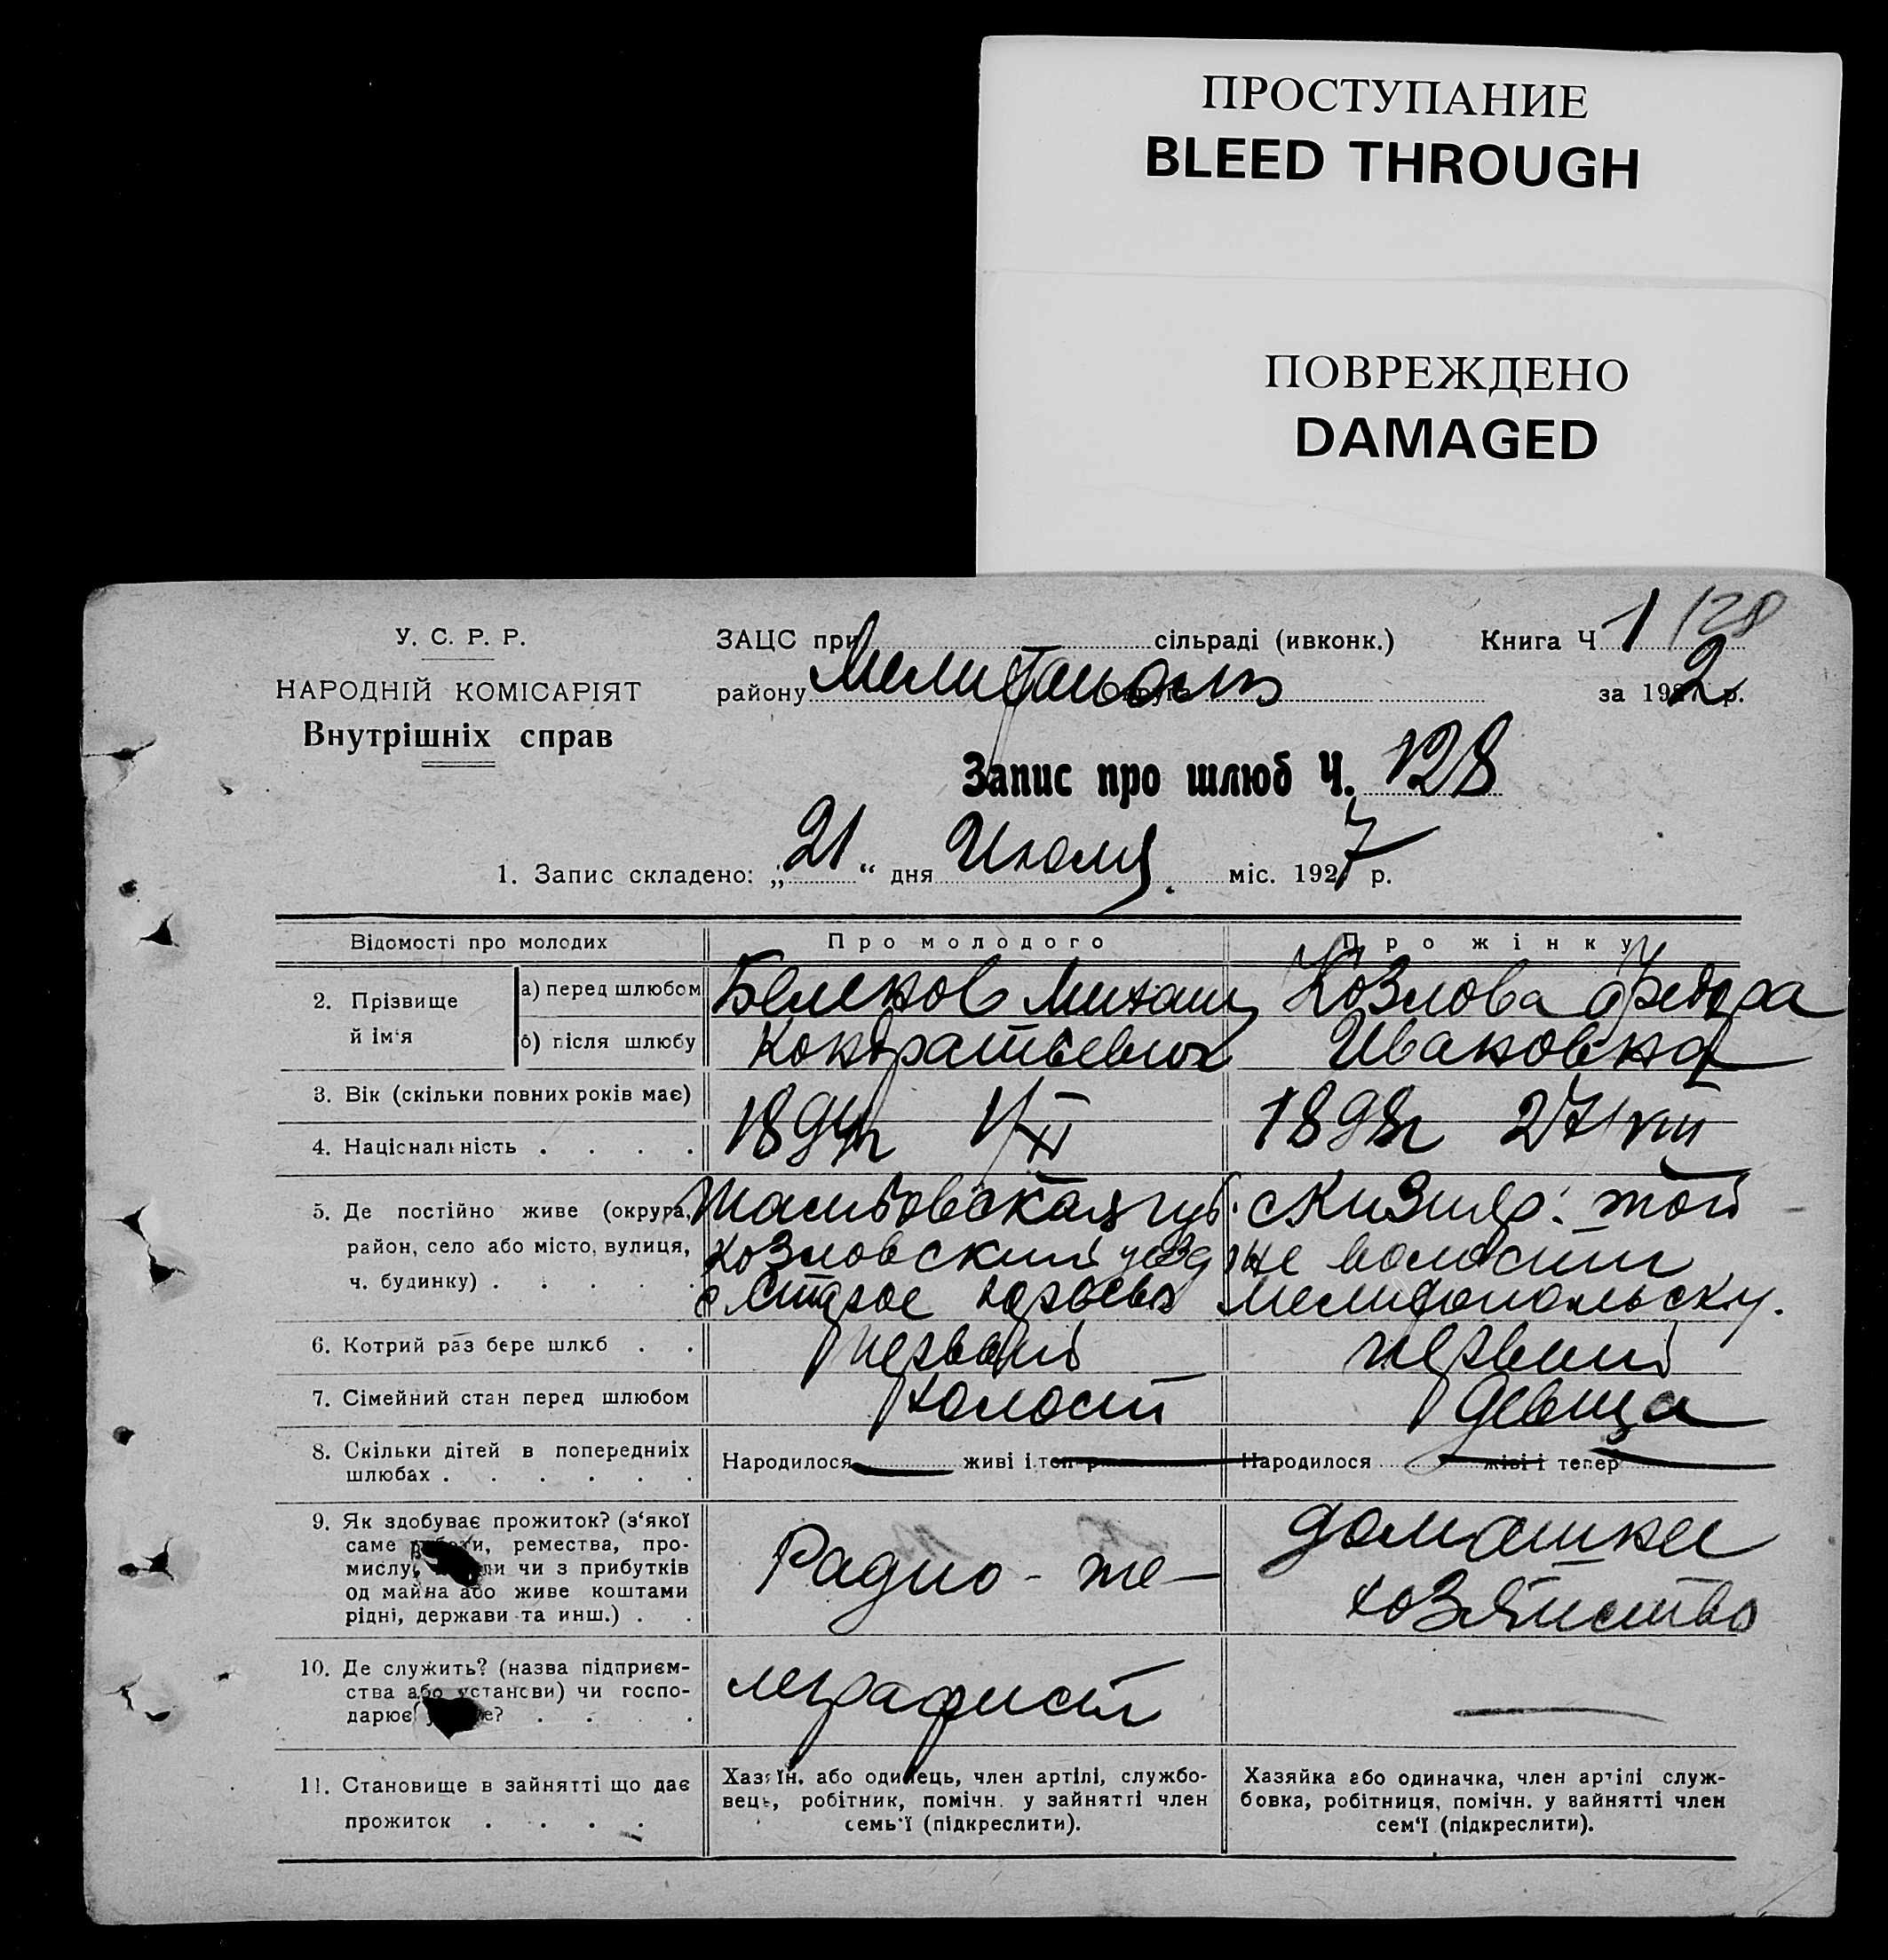 ПРОСТУПАНИЕ
BLEED THROUGH
ПОВРЕЖДЕНО
DAMAGED
У. С. Р. Р.
НАРОДНІЙ КОМІСАРІЯТ
Внутрішніх справ
ЗАЦС при сільраді (ивконк.) Книга Ч 1 128
району Мелитополь за 192 2 р.
Запис про шлюб Ч. 128
1. Запис складено: „21“ дня Июля міс. 1927 р.
Відомості про молодих Про молодого Про жінку
2. Прізвище й ім'я
а) перед шлюбом Белеков Михаил Козлова Федора
б) після шлюбу Кондратьевич Ивановна
3. Вік (скільки повних років має)
4. Національність . . . .
1894г 1/XI 1898г 27/VIII
5. Де постійно живе (округа, Тамбовская губ. с Кизияр. той
район, село або місто, вулиця, Козловский уезд же волости
ч. будинку) . . . . . с Старое Мелитопольску.
6. Котрий раз бере шлюб . . первый первый
7. Сімейний стан перед шлюбом холост девица
8. Скільки дітей в попередниіх Народилося живі і тепер Народилося живі і тепер
шлюбах . . . . . .
9. Як здобуває прожиток? (з'якої
саме ремества, про-
мислу, чи з прибутків
од майна або живе коштами
рідні, держави та инш.) . .
Радио-те- домашнее
хозяйство
10. Де служить? (назва підприєм-
ства або установи) чи госпо-
дарює . . . .
леграфист —
11. Становище в зайнятті що дає
прожиток . . . .
Хазяїн, або одинець, член артілі, службо-
вець, робітник, помічн. у зайнятті член
семь'ї (підкреслити).
Хазяйка або одиначка, член артілі служ-
бовка, робітниця, помічн. у зайнятті член
сем'ї (підкреслити).